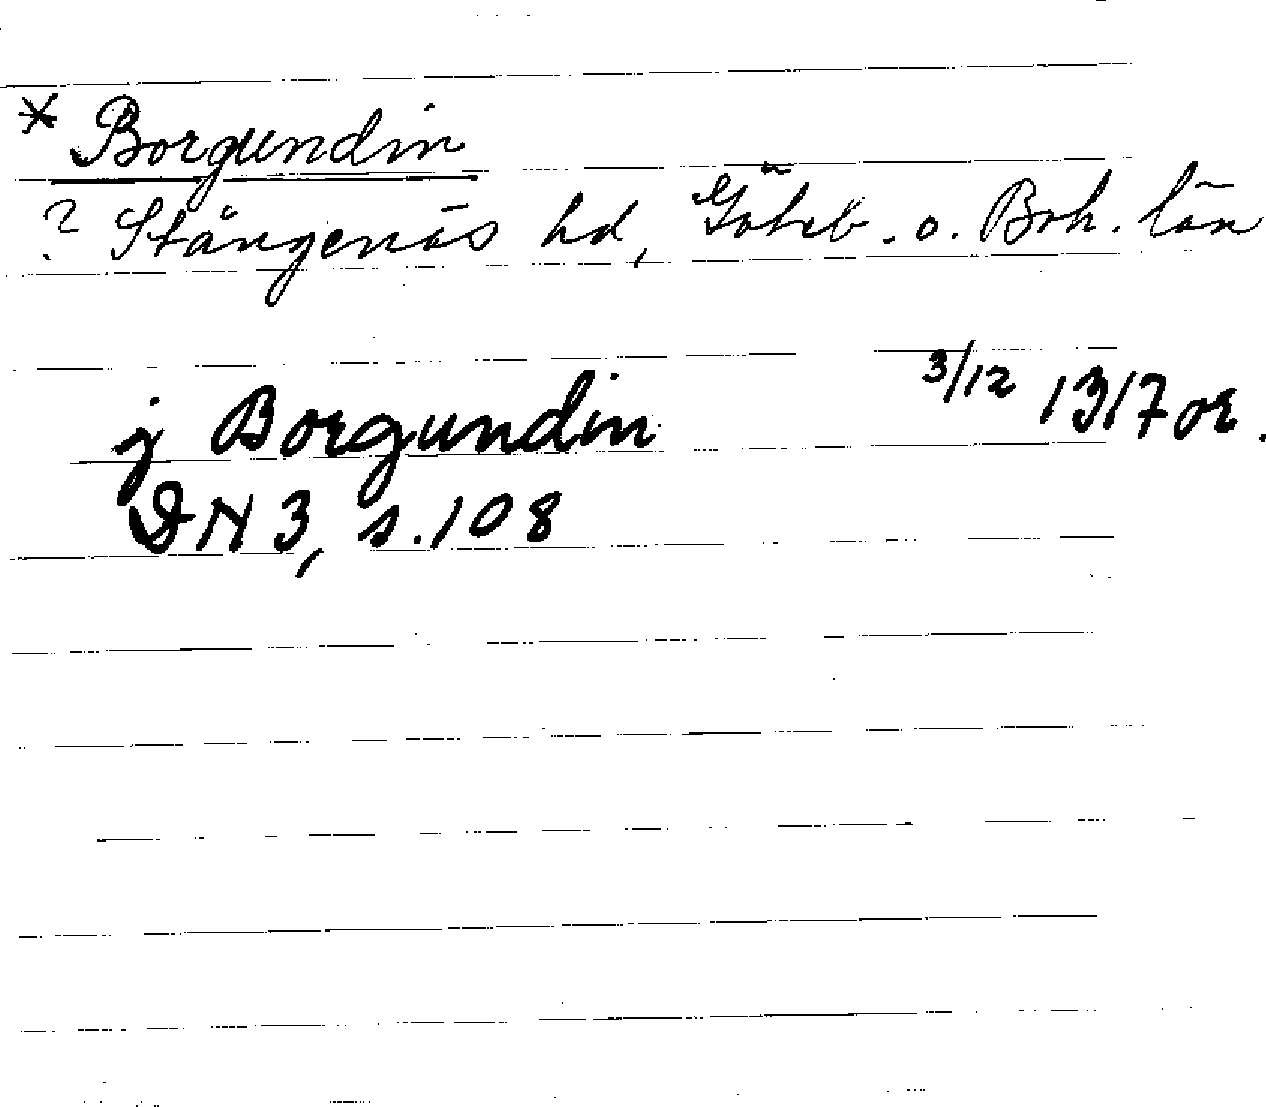 * Borgundin
? Stångenäs hd, Göteb. o. Boh. län
j Borgundin 3/12 1317 or.
DN 3, s. 108